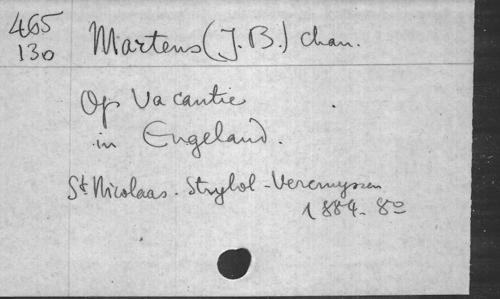 465
130
Martens (J. B.) chan.
Op Vacantie
in Engeland.
St Nicolaas. Strybol-Vercruyssen
1884. 8o